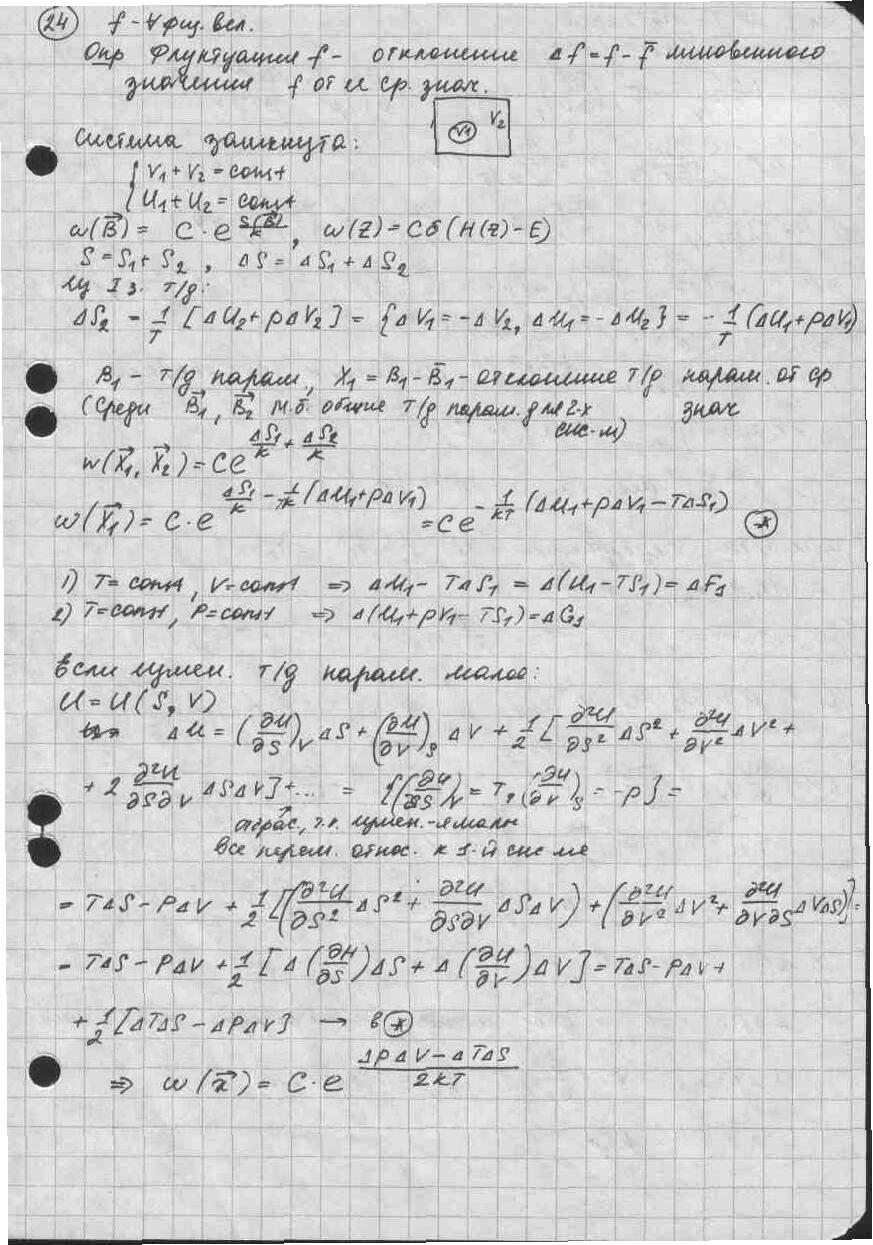 24 f - ∀ физ. вел.
Опр Флуктуация f - отклонение Δf = f - f̄ мгновенного
значения f от ее ср. знач.
V1 V2
Система замкнута:
{ V₁ + V₂ = const
{ U₁ + U₂ = const
ω(B⃗) = C · e^(S(B⃗)/k), ω(z) = Cδ(H(z) - E)
S = S₁ + S₂, ΔS = ΔS₁ + ΔS₂
Из I з. т/д:
ΔS₂ = 1/T [ΔU₂ + pΔV₂] = {ΔV₁ = -ΔV₂, ΔU₁ = -ΔU₂} = - 1/T (ΔU₁ + pΔV₁)
B₁ - т/д парам., X₁ = B₁ - B̄₁ - отклонение т/д парам. от ср
(Среди B⃗₁, B⃗₂ м.б. общие т/д парам. для 2-х знач
сис-м)
w(X⃗₁, X⃗₂) = Ce^(ΔS₁/k + ΔS₂/k)
ω(X⃗₁) = C · e^(ΔS₁/k - 1/Tk (ΔU₁ + pΔV₁)) = Ce^(-1/kT (ΔU₁ + pΔV₁ - TΔS₁)) (*)
1) T = const, V = const ⇒ ΔU₁ - TΔS₁ = Δ(U₁ - TS₁) = ΔF₁
2) T = const, P = const ⇒ Δ(U₁ + pV₁ - TS₁) = ΔG₁
Если измен. т/д парам. малое:
U = U(S, V)
ΔU = (∂U/∂S)_V ΔS + (∂U/∂V)_S ΔV + 1/2 [∂²U/∂S² ΔS² + ∂²U/∂V² ΔV² +
+ 2 ∂²U/∂S∂V ΔSΔV] + ... = {(∂U/∂S)_V = T, (∂U/∂V)_S = -p} =
отбрас., т.к. измен.-я малы
все перем. относ. к 1-й системе
= TΔS - PΔV + 1/2 [(∂²U/∂S² ΔS² + ∂²U/∂S∂V ΔSΔV) + (∂²U/∂V² ΔV² + ∂²U/∂V∂S ΔVΔS)] =
= TΔS - PΔV + 1/2 [Δ(∂U/∂S)ΔS + Δ(∂U/∂V)ΔV] = TΔS - PΔV +
+ 1/2 [ΔTΔS - ΔPΔV] → в (*)
⇒ ω(x⃗) = C · e^((ΔPΔV - ΔTΔS)/2kT)